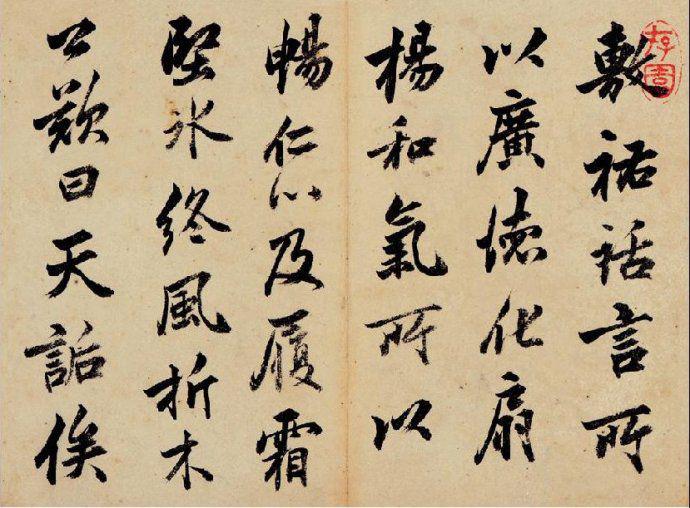 敷祐話言所
以廣德化扇
楊和氣所以
暢仁心及履霜
堅氷終風折木
公歎曰天詬俟